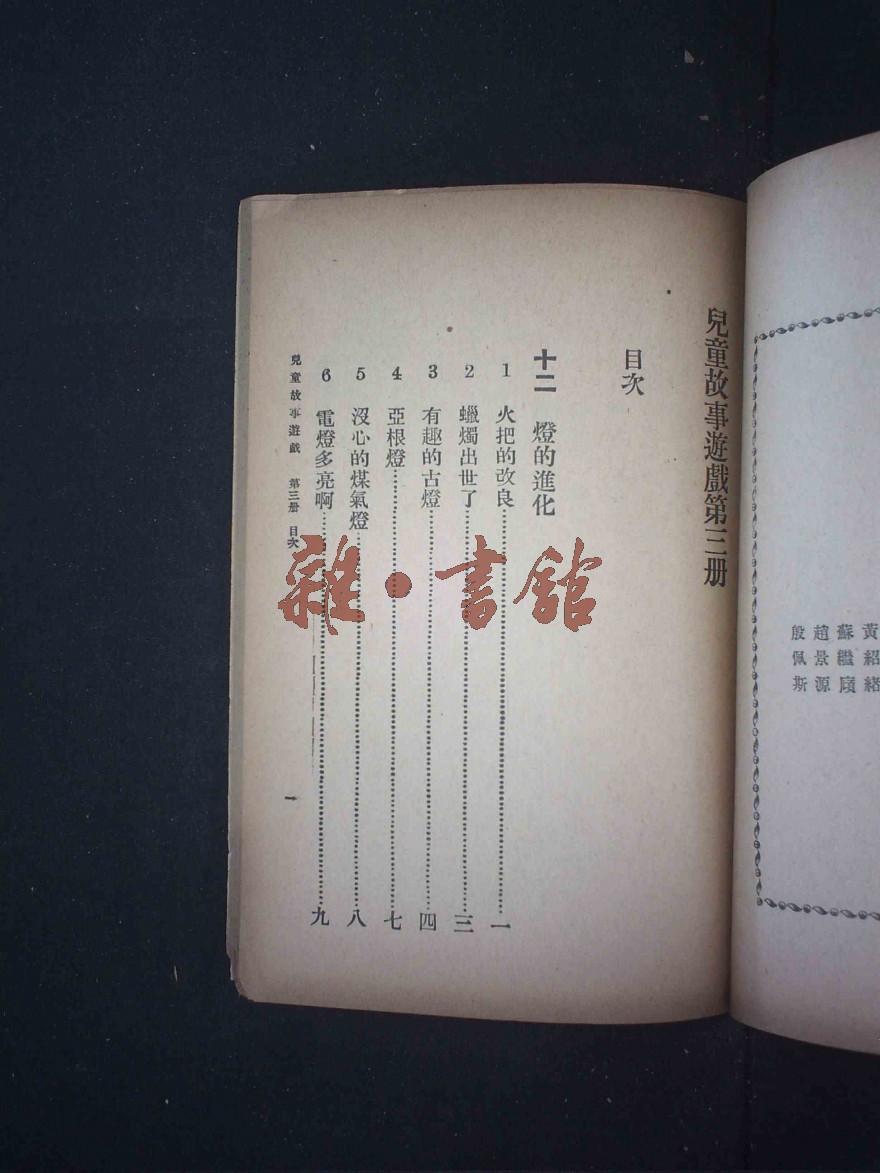 黃紹緒
蘇繼廎
趙景源
殷佩斯
兒童故事遊戲第三册
目次
十二 燈的進化
1 火把的改良 一
2 蠟燭出世了 三
3 有趣的古燈 四
4 亞根燈 七
5 沒心的煤氣燈 八
6 電燈多亮啊 九
兒童故事遊戲 第三册 目次 一
雜·書館